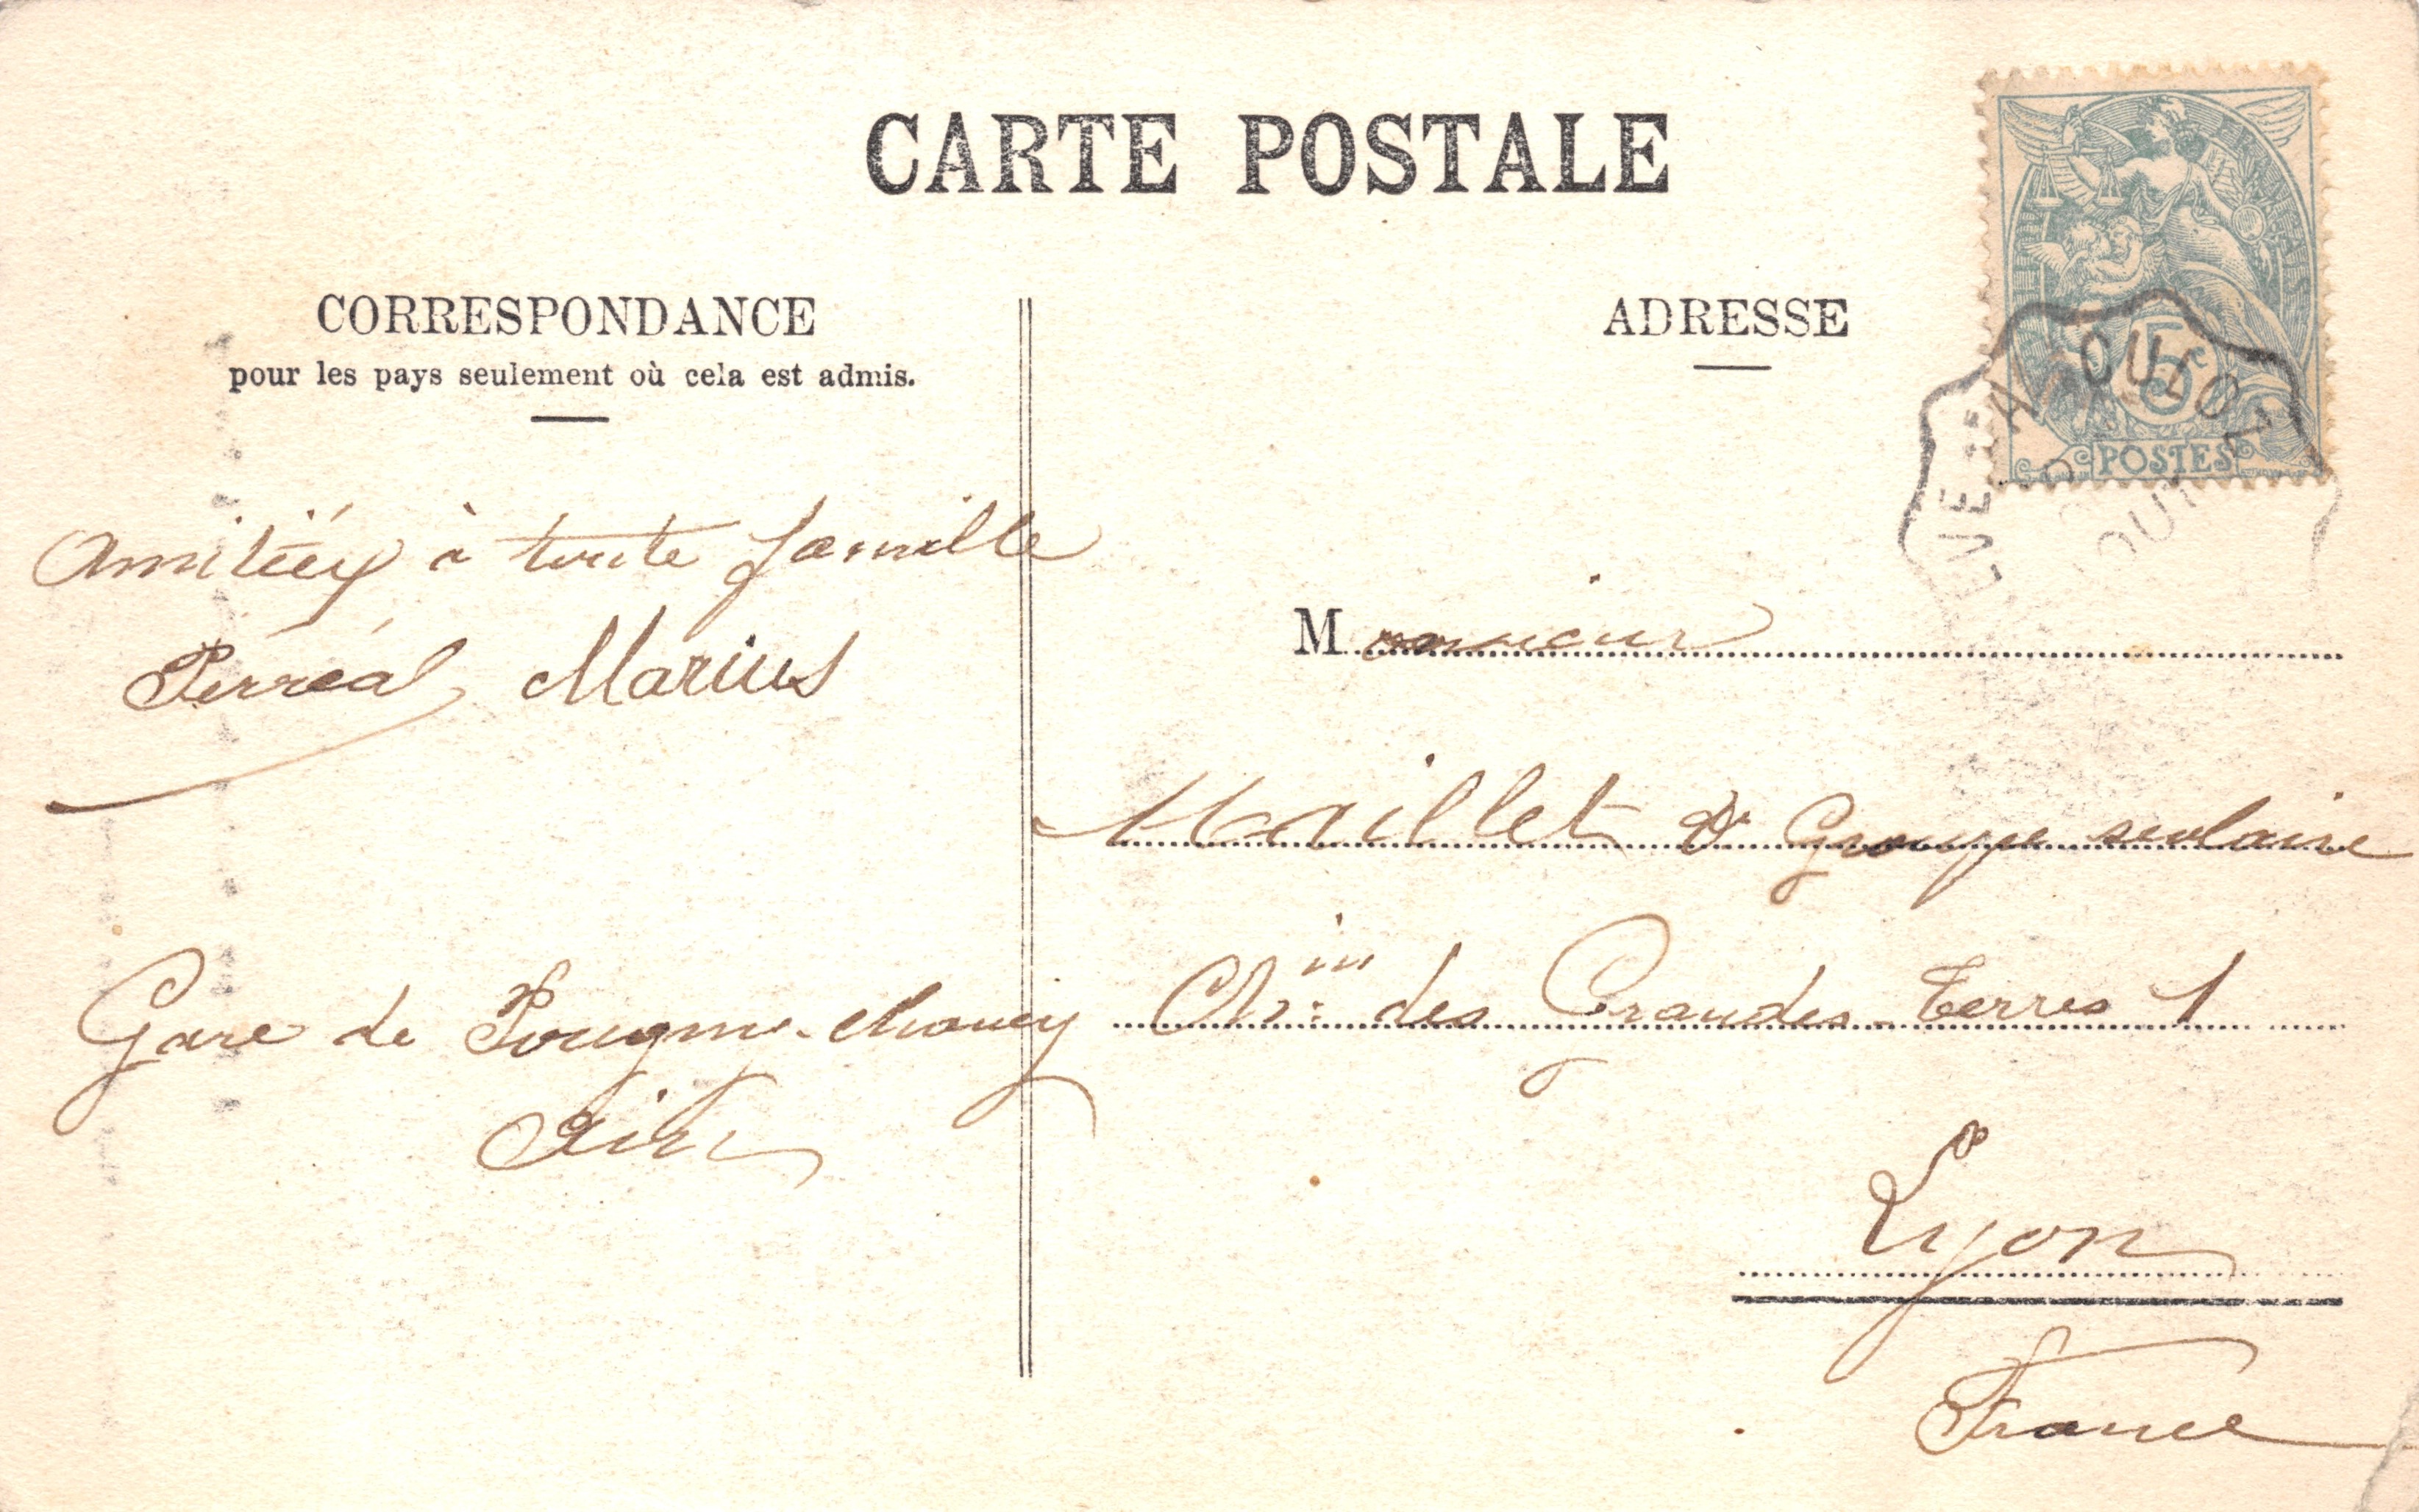 CARTE POSTALE
CORRESPONDANCE
pour les pays seulement où cela est admis.
Amitiéy à toute famille
Perréal Marius
Gare de Pougny-Chancy
Ain
ADRESSE
Monsieur
Maillet Groupe scolaire
Ch.in des Grandes-Terres 1
Lyon
France
5c
POSTES
OUT